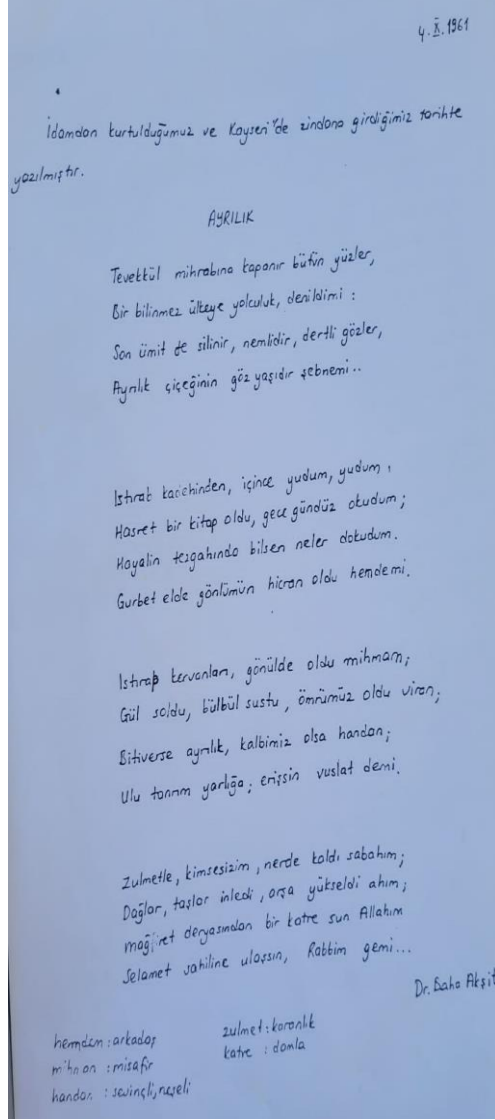 4.X.1961
İdamdan kurtulduğumuz ve Kayseri'de zindana girdiğimiz tarihte
yazılmıştır.
AYRILIK
Tevekkül mihrabına kapanır bütün yüzler,
Bir bilinmez ülkeye yolculuk, denildimi :
Son ümit de silinir, nemlidir, dertli gözler,
Ayrılık çiçeğinin göz yaşıdır şebnemi..
Istırab kadehinden, içince yudum, yudum,
Hasret bir kitap oldu, gece gündüz okudum;
Hayalin tezgahında bilsen neler dokudum.
Gurbet elde gönlümün hicran oldu hemdemi.
Istırap kervanları, gönülde oldu mihmanı;
Gül soldu, bülbül sustu, ömrümüz oldu viran;
Bitiverse ayrılık, kalbimiz olsa handan;
Ulu tanrım yarlığa; erişsin vuslat demi.
Zulmetle, kimsesizim, nerde kaldı sabahım;
Dağlar, taşlar inledi, arşa yükseldi ahım;
mağfiret deryasından bir katre sun Allahım
Selamet sahiline ulaşsın, Rabbim gemi...
Dr. Baha Akşit
hemdem : arkadaş
mihman : misafir
handan : sevinçli, neşeli
zulmet : karanlık
katre : damla